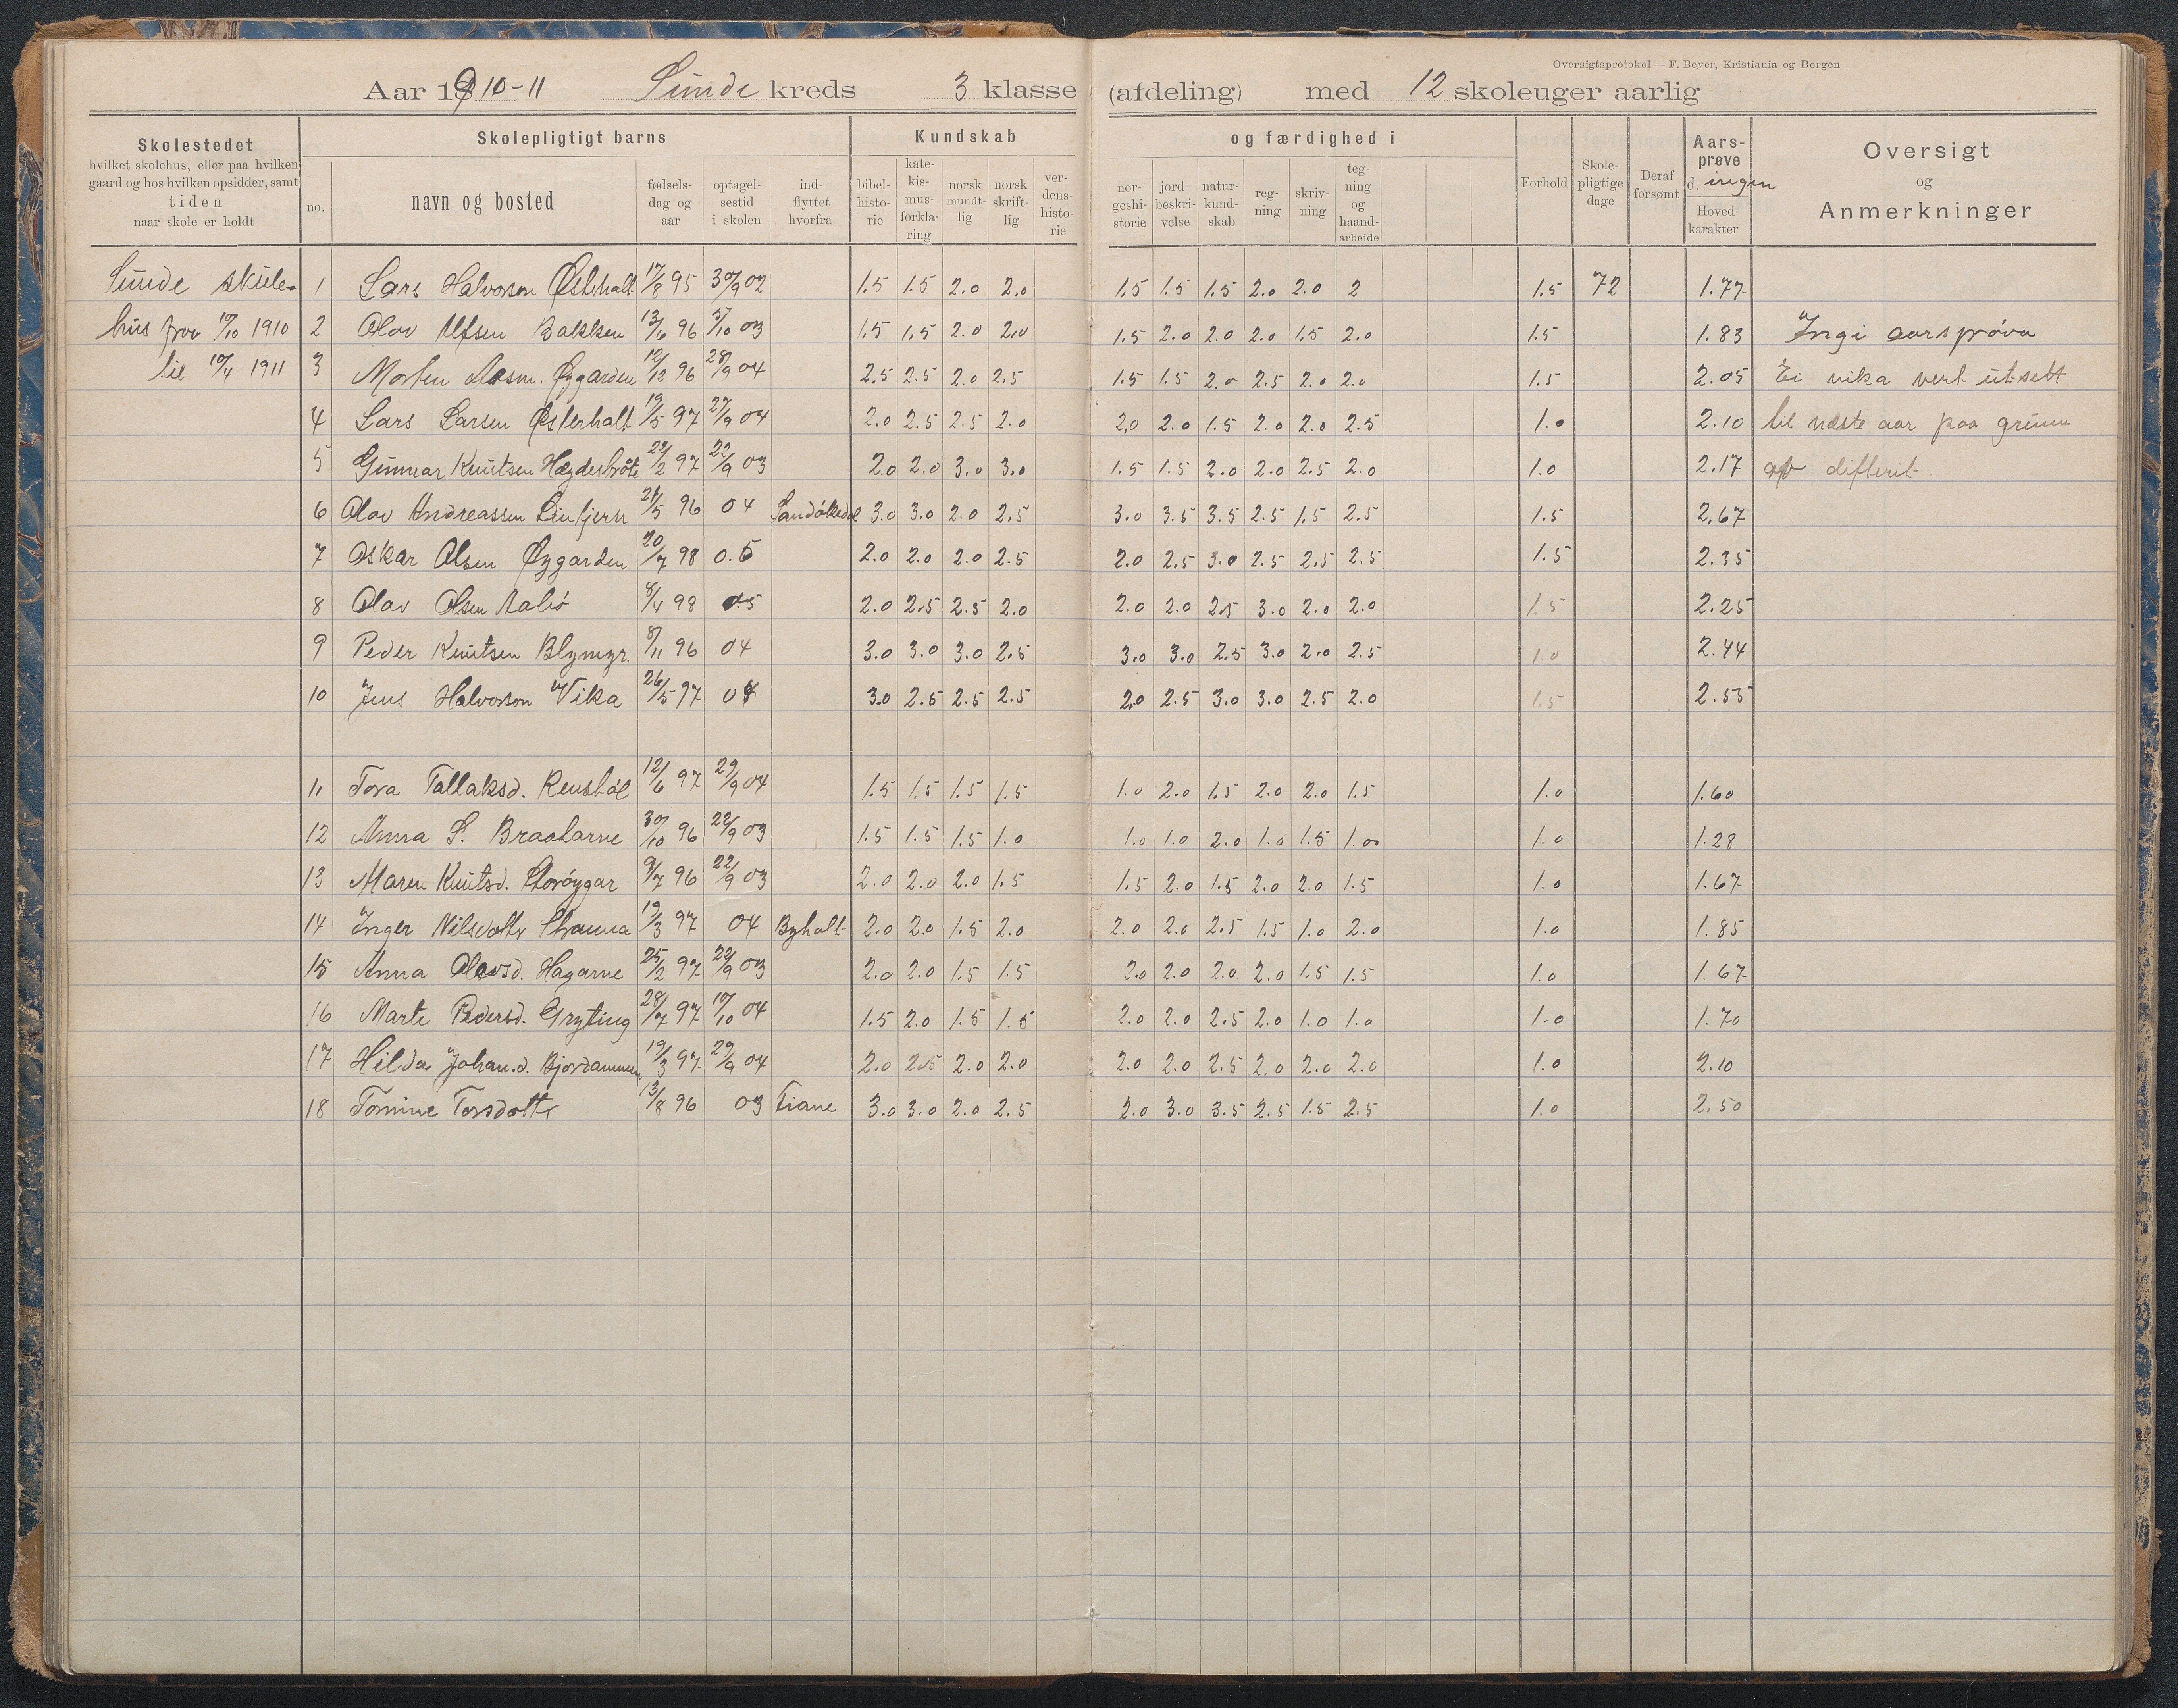 Oversigtsprotokol — F. Beyer, Kristiania og Bergen
Aar 1910-11 Sunde kreds 3 klasse (afdeling) med 12 skoleuger aarlig
Skolestedet hvilket skolehus, eller paa hvilken gaard og hos hvilken opsidder, samt tiden naar skole er holdt
Skolepligtigt barns
no. navn og bosted fødsels-dag og aar optagel-sestid i skolen ind-flyttet hvorfra
Kundskab og færdighed i
bibel-histo-rie kate-kis-mus-forkla-ring norsk mundt-lig norsk skrift-lig ver-dens-histo-rie nor-geshi-storie jord-beskri-velse natur-kund-skab reg-ning skriv-ning teg-ning og haand-arbeide
Forhold Skole-pligtige dage Deraf forsømt Aars-prøve d. ingen Hoved-karakter
Oversigt og Anmerkninger
Sunde skule- 1 Lars Halvorson Østerhalt 17/8 95 30/9 02 1.5 1.5 2.0 2.0 1.5 1.5 1.5 2.0 2.0 2 1.5 72 1.77
hus fraa 10/10 1910 2 Olav Ulfsen Bakken 13/6 96 5/10 03 1.5 1.5 2.0 2.0 1.5 2.0 2.0 2.0 1.5 2.0 1.5 1.83 Ingi aarsprøva
til 10/4 1911 3 Morten Aasm. Øygarden 12/12 96 28/9 04 2.5 2.5 2.0 2.5 1.5 1.5 2.0 2.5 2.0 2.0 1.5 2.05 Ei vika vert utsett
4 Lars Larsen Østerhalt 19/5 97 27/9 04 2.0 2.5 2.5 2.0 2.0 2.0 1.5 2.0 2.0 2.5 1.0 2.10 til næste aar paa grunn
5 Gunnar Knutsen 22/2 97 22/9 03 2.0 2.0 3.0 3.0 1.5 1.5 2.0 2.0 2.5 2.0 1.0 2.17 av difterit.
6 Olav Andreassen Lintjern 21/5 96 04 3.0 3.0 2.0 2.5 3.0 3.5 3.5 2.5 1.5 2.5 1.5 2.67
7 Oskar Olsen Øygarden 20/7 98 0.5 2.0 2.0 2.0 2.5 2.0 2.5 3.0 2.5 2.5 2.5 1.5 2.35
8 Olav Olsen Aabø 8/4 98 05 2.0 2.5 2.5 2.0 2.0 2.0 2.5 3.0 2.0 2.0 1.5 2.25
9 Peder Knutsen Blymyr. 8/11 96 04 3.0 3.0 3.0 2.5 3.0 3.0 2.5 3.0 2.0 2.5 1.0 2.44
10 Jens Halvorson Vika 26/5 97 04 3.0 2.5 2.5 2.5 2.0 2.5 3.0 3.0 2.5 2.0 1.5 2.55
11 Tora Tallaksd. Renstøl 12/6 97 29/9 04 1.5 1.5 1.5 1.5 1.0 2.0 1.5 2.0 2.0 1.5 1.0 1.60
12 Anna S. Braatarne 30/10 96 22/9 03 1.5 1.5 1.5 1.0 1.0 1.0 2.0 1.0 1.5 1.0 1.0 1.28
13 Maren Knutsd. 9/7 96 22/9 03 2.0 2.0 2.0 1.5 1.5 2.0 1.5 2.0 2.0 1.5 1.0 1.67
14 Inger Nilsdotter 19/3 97 04 Byholt 2.0 2.0 1.5 2.0 2.0 2.0 2.5 1.5 1.0 2.0 1.0 1.85
15 Anna Olavsd. Hagarne 25/2 97 22/9 03 2.0 2.0 1.5 1.5 2.0 2.0 2.0 2.0 1.5 1.5 1.0 1.67
16 Marte Pedersd. Gryting 28/7 97 10/10 04 1.5 2.0 1.5 1.5 2.0 2.0 2.5 2.0 1.0 1.0 1.0 1.70
17 Hilda Johan.d. Bjordammen 19/3 97 29/9 04 2.0 2.5 2.0 2.0 2.0 2.0 2.5 2.0 2.0 2.0 1.0 2.10
18 Tomine Torsdotter 13/8 96 03 Fiane 3.0 3.0 2.0 2.5 2.0 3.0 3.5 2.5 1.5 2.5 1.0 2.50